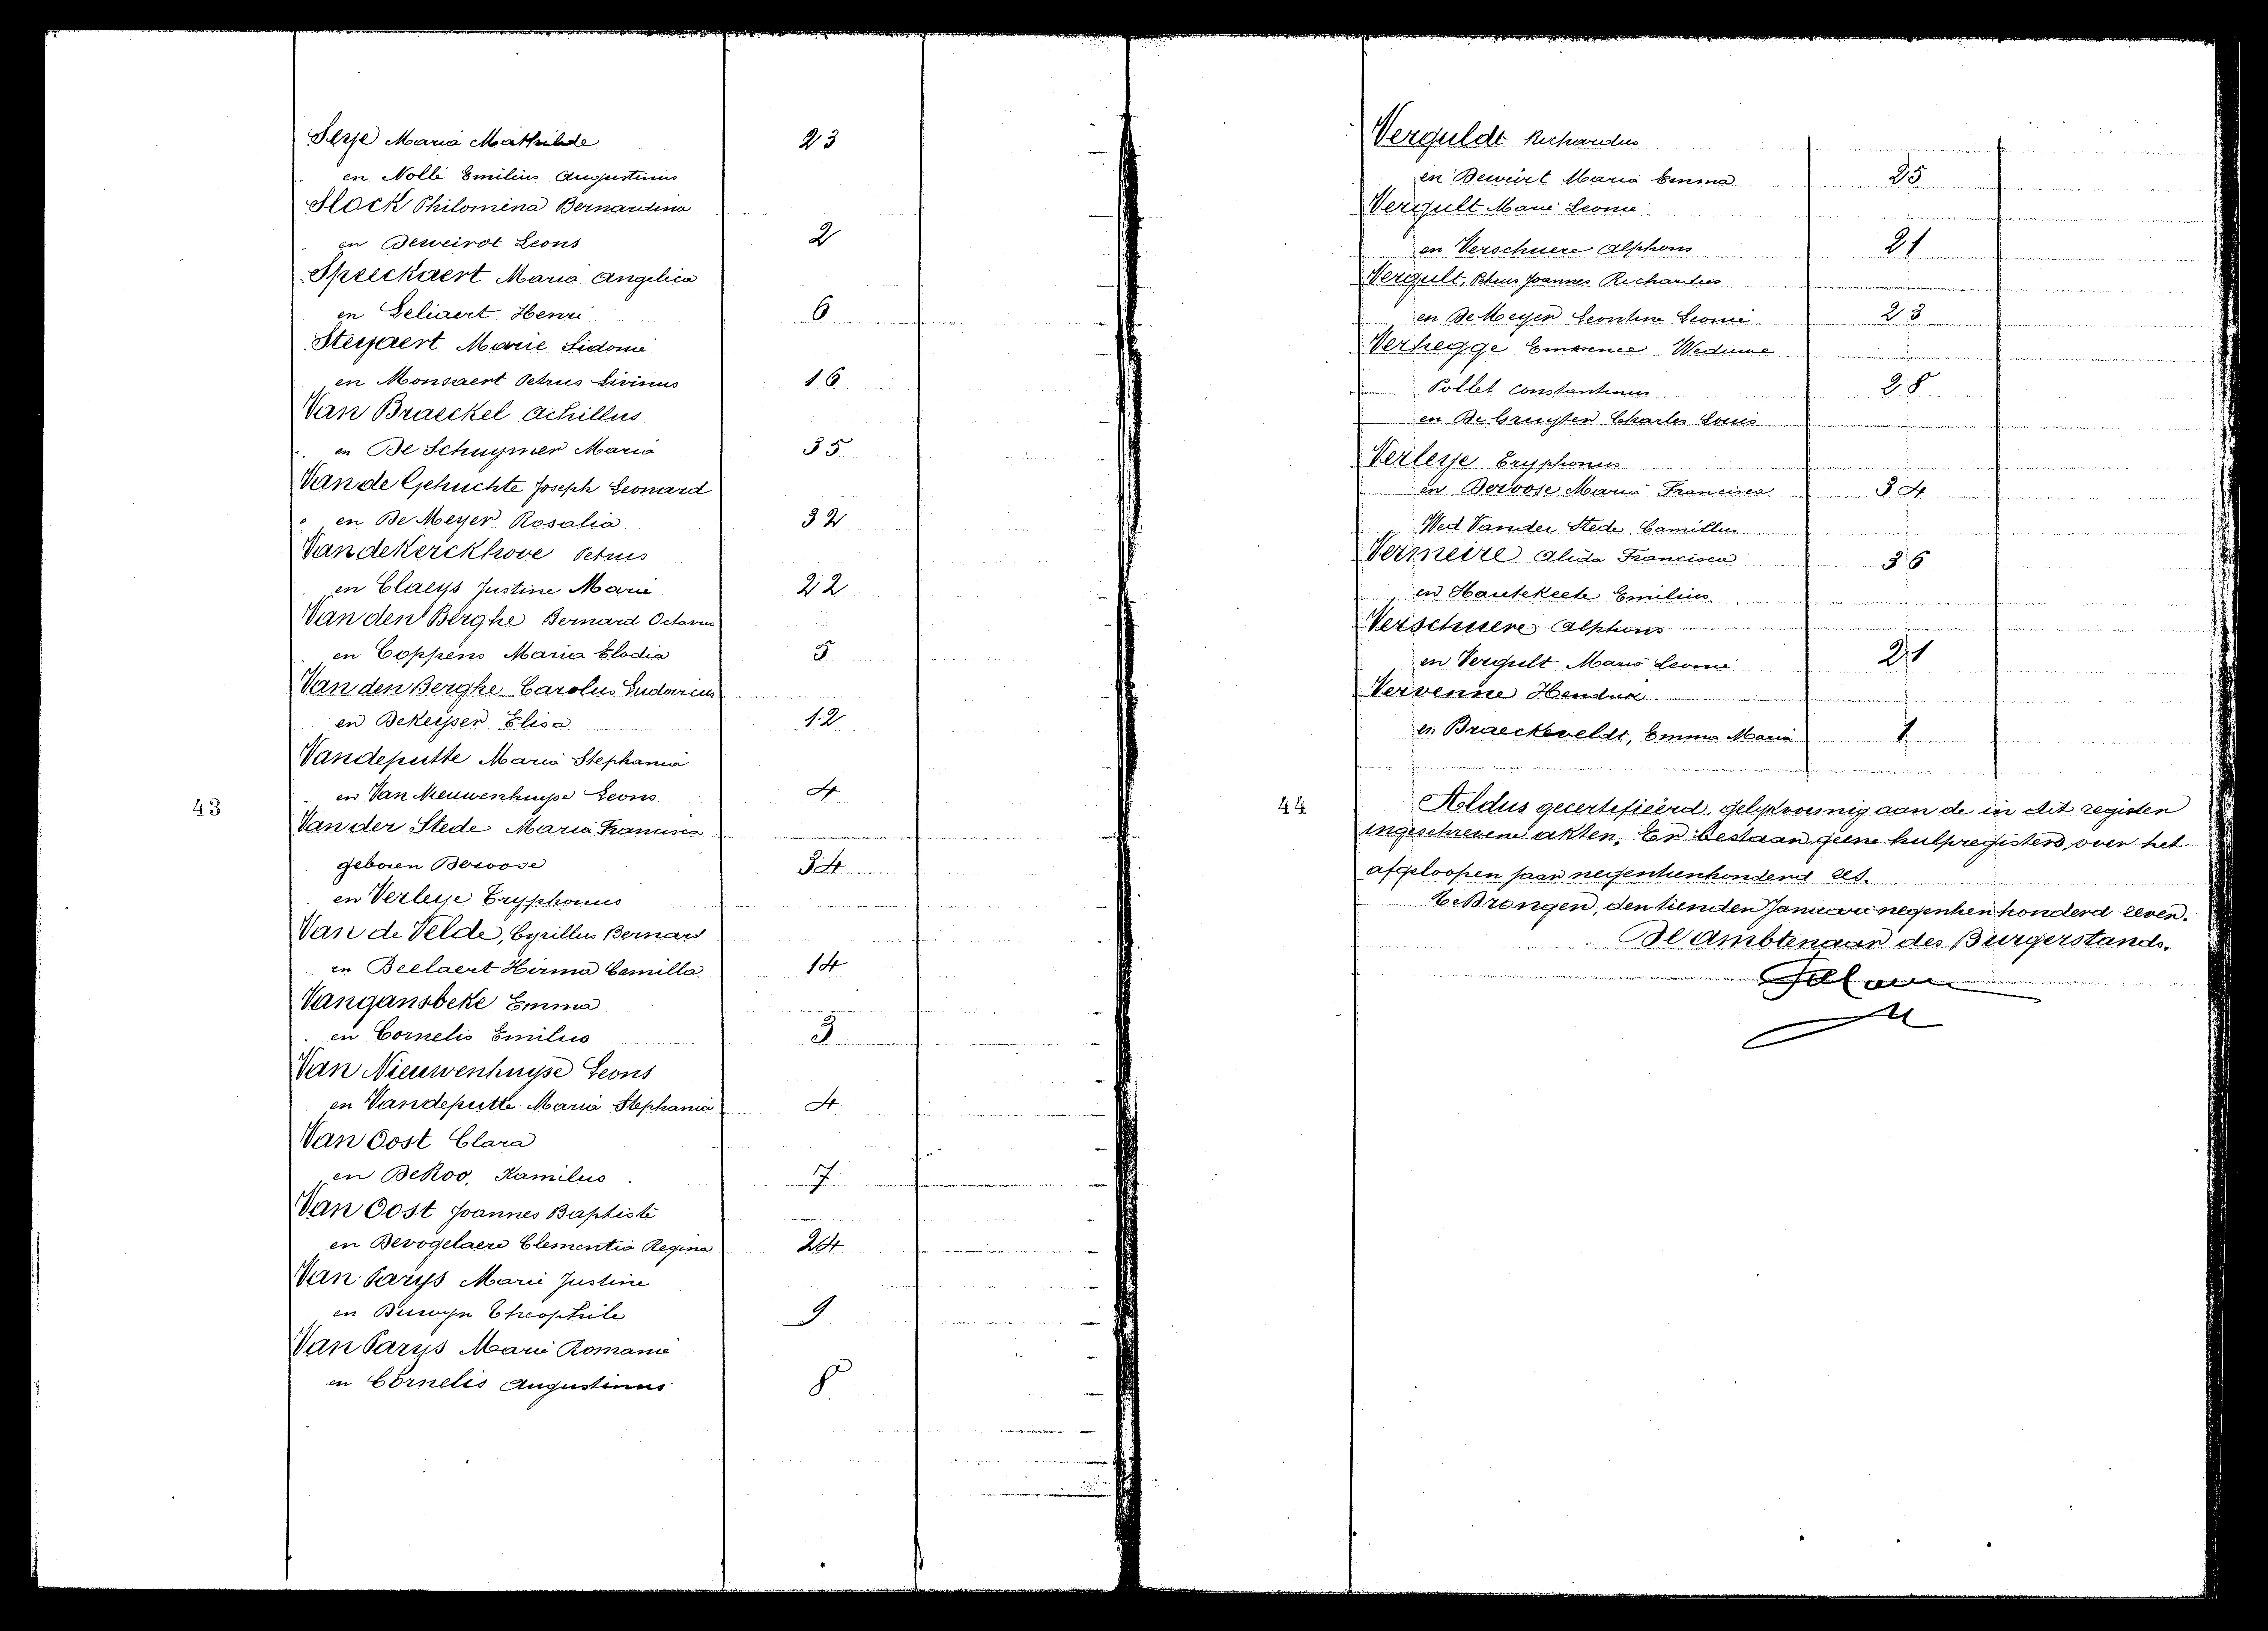 Serje Maria Mathilde 23
en Nollé Emilius Augustinus
Slock Philomina Bernardina
en Deweirdt Leons 2
Speeckaert Maria Angelica
en Geliaert Henri 6
Steyaert Marie Sidonie
en Monsaert Petrus Livinus 16
Van Braeckel Achillus
en De Schuymer Maria 35
Van de Gehuchte Joseph Leonard
en De Meyer Rosalia 32
Van de Kerckhove Petrus
en Claeys Justine Marie 22
Van den Berghe Bernard Octavus
en Coppens Maria Elodia 5
Van den Berghe Carolus Ludovicus
en Dekeyser Elisa 12
Vandeputte Maria Stephania
en Van Nieuwenhuyse Leons 4
43
Van der Stede Maria Francisca
geboren Deroose 34
en Verleye Tryphonus
Van de Velde, Cyrillus Bernard
en Beelaert Hirma Camilla 14
Vangansbeke Emma
en Cornelis Emilius 3
Van Nieuwenhuyse Leons
en Vandeputte Maria Stephania 4
Van Oost Clara
en DeRoo, Kamilus 7
Van Oost Joannes Baptiste
en Devogelaere Clementia Regina 24
Van Parys Marie Justine
en Theophile 9
Van Parys Marie Romanie
en Cornelis Augustinus 8
Verguldt Richardus
en Deweirt Maria Emma 25
Vergult Marie Leonie
en Verschuere Alphons 21
Vergult, Petrus Joannes Richardus
en De Meyer Leontine Leonie 23
Verhegge Emerence Weduwe
Pollet Constantinus 28
en De Gruyter Charles Louis
Verleye Tryphonus
en Deroose Maria Francisca 34
Wed Vander Stede Camillus
Vermeire Alida Francisca 36
en Hautekeete Emilius
Verschuere Alphons
en Vergult Marie Leonie 21
Vervenne Hendrik
en Braeckeveldt, Emma Maria 1
44
Aldus gecertifieërd, gelykvormig aan de in dit register
ingeschrevene akten. Er bestaan geene hulpregisters over het
afgeloopen jaar negentienhonderd zes.
Te Drongen, den tienden Januari negentien honderd zeven.
De Ambtenaar des Burgerstands.